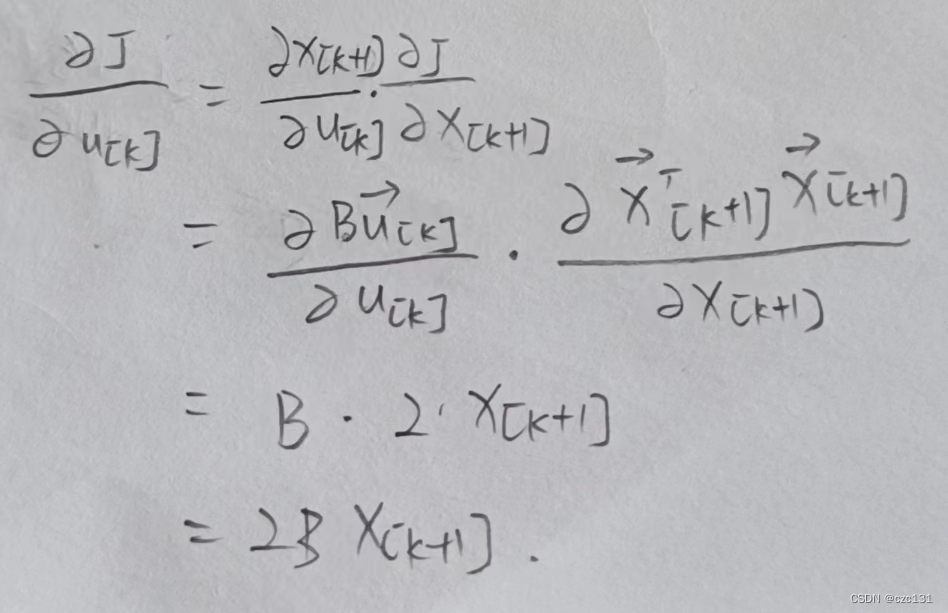 ∂J/∂u[k] = ∂x[k+1]/∂u[k] · ∂J/∂x[k+1]
= ∂B\vec{u}[k]/∂u[k] · ∂\vec{x}^T[k+1]\vec{x}[k+1]/∂x[k+1]
= B · 2 · x[k+1]
= 2B x[k+1] .
CSDN @czc131